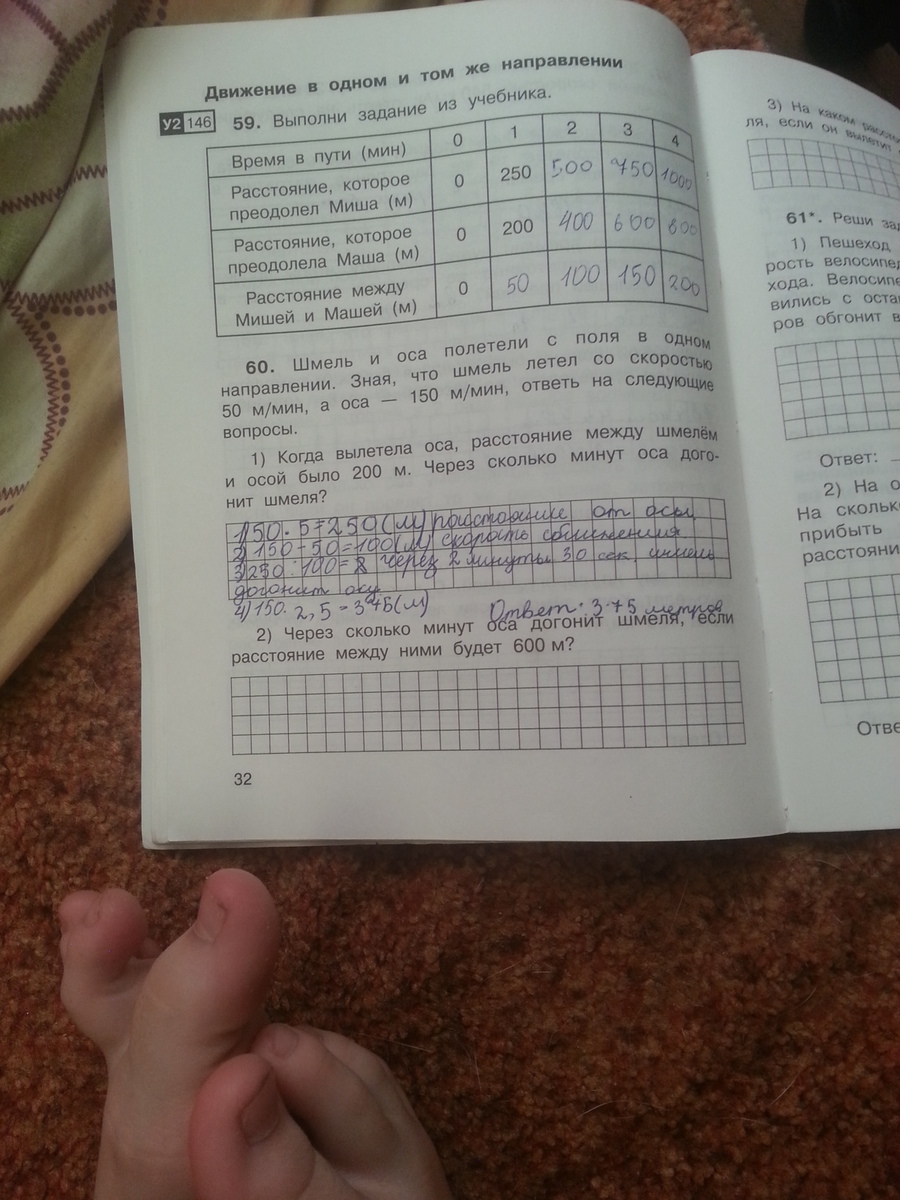 Движение в одном и том же направлении
У2 146 59. Выполни задание из учебника.
Время в пути (мин) 0 1 2 3 4
Расстояние, которое преодолел Миша (м) 0 250 500 750 1000
Расстояние, которое преодолела Маша (м) 0 200 400 600 800
Расстояние между Мишей и Машей (м) 0 50 100 150 200
60. Шмель и оса полетели с поля в одном
направлении. Зная, что шмель летел со скоростью
50 м/мин, а оса — 150 м/мин, ответь на следующие
вопросы.
1) Когда вылетела оса, расстояние между шмелём
и осой было 200 м. Через сколько минут оса дого-
нит шмеля?
1) 50 · 5 = 250 (м) расстояние от осы
2) 150 - 50 = 100 (м) скорость сближения
3) 250 : 100 = Через 2 минуты 30 сек. шмель
догонит осу
4) 150 · 2,5 = 375 (м) Ответ: 375 метров
2) Через сколько минут оса догонит шмеля, если
расстояние между ними будет 600 м?
32
3) На каком
ля, если он вылетит
61*. Реши
1) Пешеход
рость
хода.
вились с
ров обгонит в
Ответ:
2) На
На
прибыть